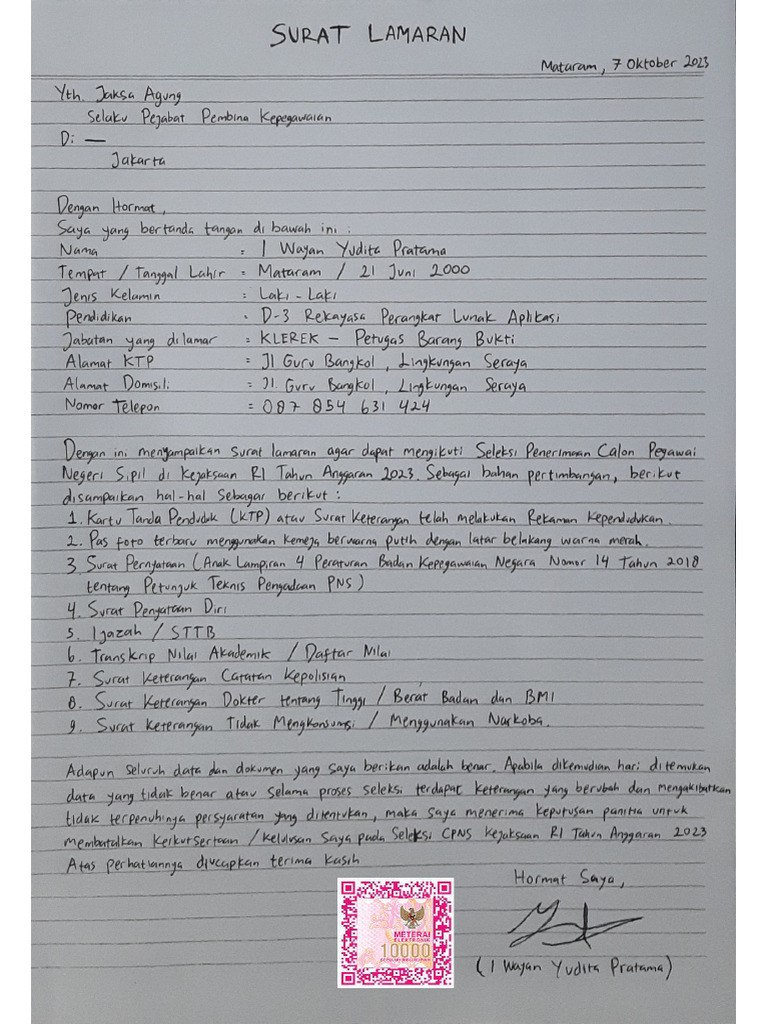 SURAT LAMARAN
Mataram, 7 Oktober 2023
Yth. Jaksa Agung
Selaku Pejabat Pembina Kepegawaian
Di —
Jakarta
Dengan Hormat,
Saya yang bertanda tangan di bawah ini :
Nama : I Wayan Yudita Pratama
Tempat / Tanggal Lahir : Mataram / 21 Juni 2000
Jenis Kelamin : Laki - Laki
Pendidikan : D-3 Rekayasa Perangkat Lunak Aplikasi
Jabatan yang dilamar : KLEREK - Petugas Barang Bukti
Alamat KTP : Jl Guru Bangkol, Lingkungan Seraya
Alamat Domisili : Jl. Guru Bangkol, Lingkungan Seraya
Nomor Telepon : 087 854 631 424
Dengan ini menyampaikan surat lamaran agar dapat mengikuti Seleksi Penerimaan Calon Pegawai
Negeri Sipil di Kejaksaan RI Tahun Anggaran 2023. Sebagai bahan pertimbangan, berikut
disampaikan hal-hal sebagai berikut :
1. Kartu Tanda Penduduk (KTP) atau Surat Keterangan telah melakukan Rekaman Kependudukan.
2. Pas foto terbaru menggunakan kemeja berwarna putih dengan latar belakang warna merah.
3. Surat Pernyataan (Anak Lampiran 4 Peraturan Badan Kepegawaian Negara Nomor 14 Tahun 2018
tentang Petunjuk Teknis Pengadaan PNS)
4. Surat Penyataan Diri
5. Ijazah / STTB
6. Transkrip Nilai Akademik / Daftar Nilai
7. Surat Keterangan Catatan Kepolisian
8. Surat Keterangan Dokter tentang Tinggi / Berat Badan dan BMI
9. Surat Keterangan Tidak Mengkonsumsi / Menggunakan Narkoba.
Adapun seluruh data dan dokumen yang saya berikan adalah benar. Apabila dikemudian hari ditemukan
data yang tidak benar atau selama proses seleksi terdapat keterangan yang berubah dan mengakibatkan
tidak terpenuhinya persyaratan yang ditentukan, maka saya menerima keputusan panitia untuk
membatalkan keikutsertaan / kelulusan saya pada Seleksi CPNS Kejaksaan RI Tahun Anggaran 2023
Atas perhatiannya diucapkan terima kasih
Hormat Saya,
METERAI
ELEKTRONIK
10000
(I Wayan Yudita Pratama)